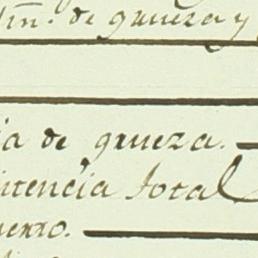 de grueza y
ia de grueza.
intencia total
uerzo.